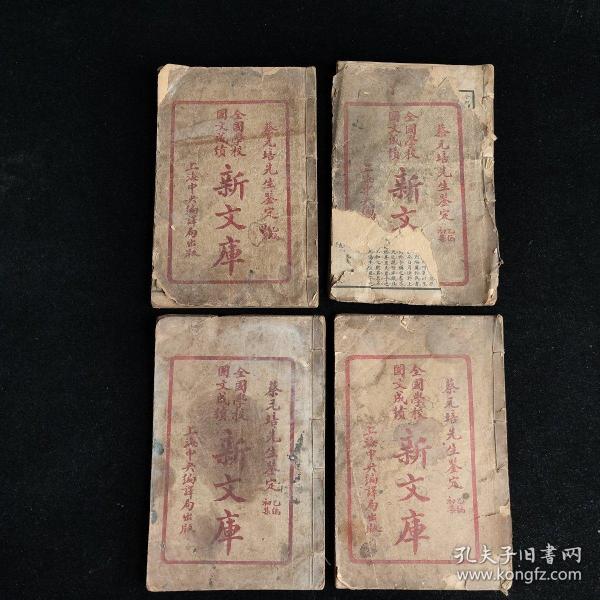 蔡元培先生鉴定
全國學校
國文成績
新文庫
上海中央编譯局出版
蔡元培先生鉴定
乙编
初集
全國學校
國文成績
新文
上海中央编
蔡元培先生鉴定
乙编
初集
全國學校
國文成績
新文庫
上海中央编譯局出版
蔡元培先生鉴定
乙编
初集
全國學校
國文成績
新文庫
上海中央编譯局出版
孔夫子旧書网
www.kongfz.com